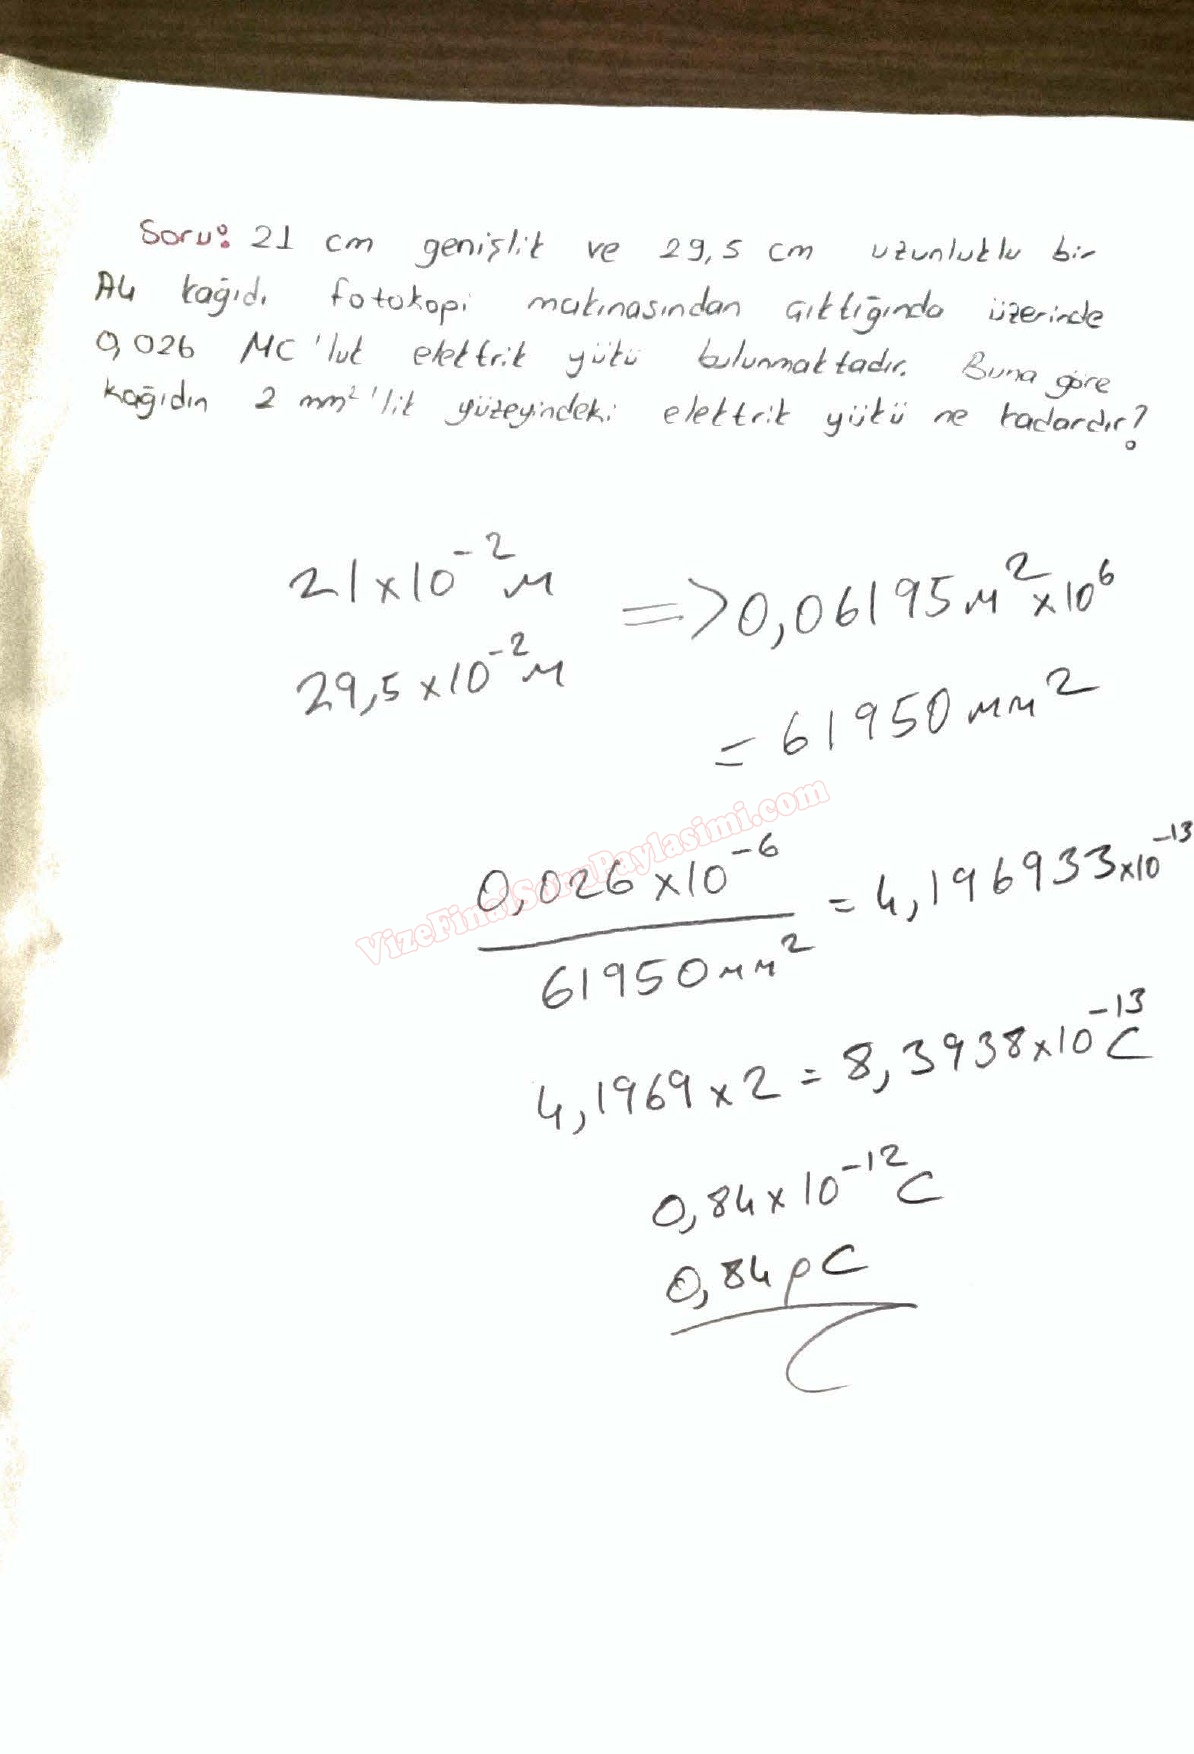 Soru: 21 cm genişlik ve 29,5 cm uzunluklu bir
A4 kağıdı fotokopi makinasından çıktığında üzerinde
0,026 MC'luk elektrik yükü bulunmaktadır. Buna göre
kağıdın 2 mm²'lik yüzeyindeki elektrik yükü ne kadardır?
21x10⁻² m
29,5x10⁻² m
=> 0,06195 m² x10⁶
= 61950 mm²
VizeFinalSoruPaylasimi.com
0,026x10⁻⁶
61950 mm²
= 4,196933x10⁻¹³
4,1969 x 2 = 8,3938x10⁻¹³ C
0,84x10⁻¹² C
0,84 pC